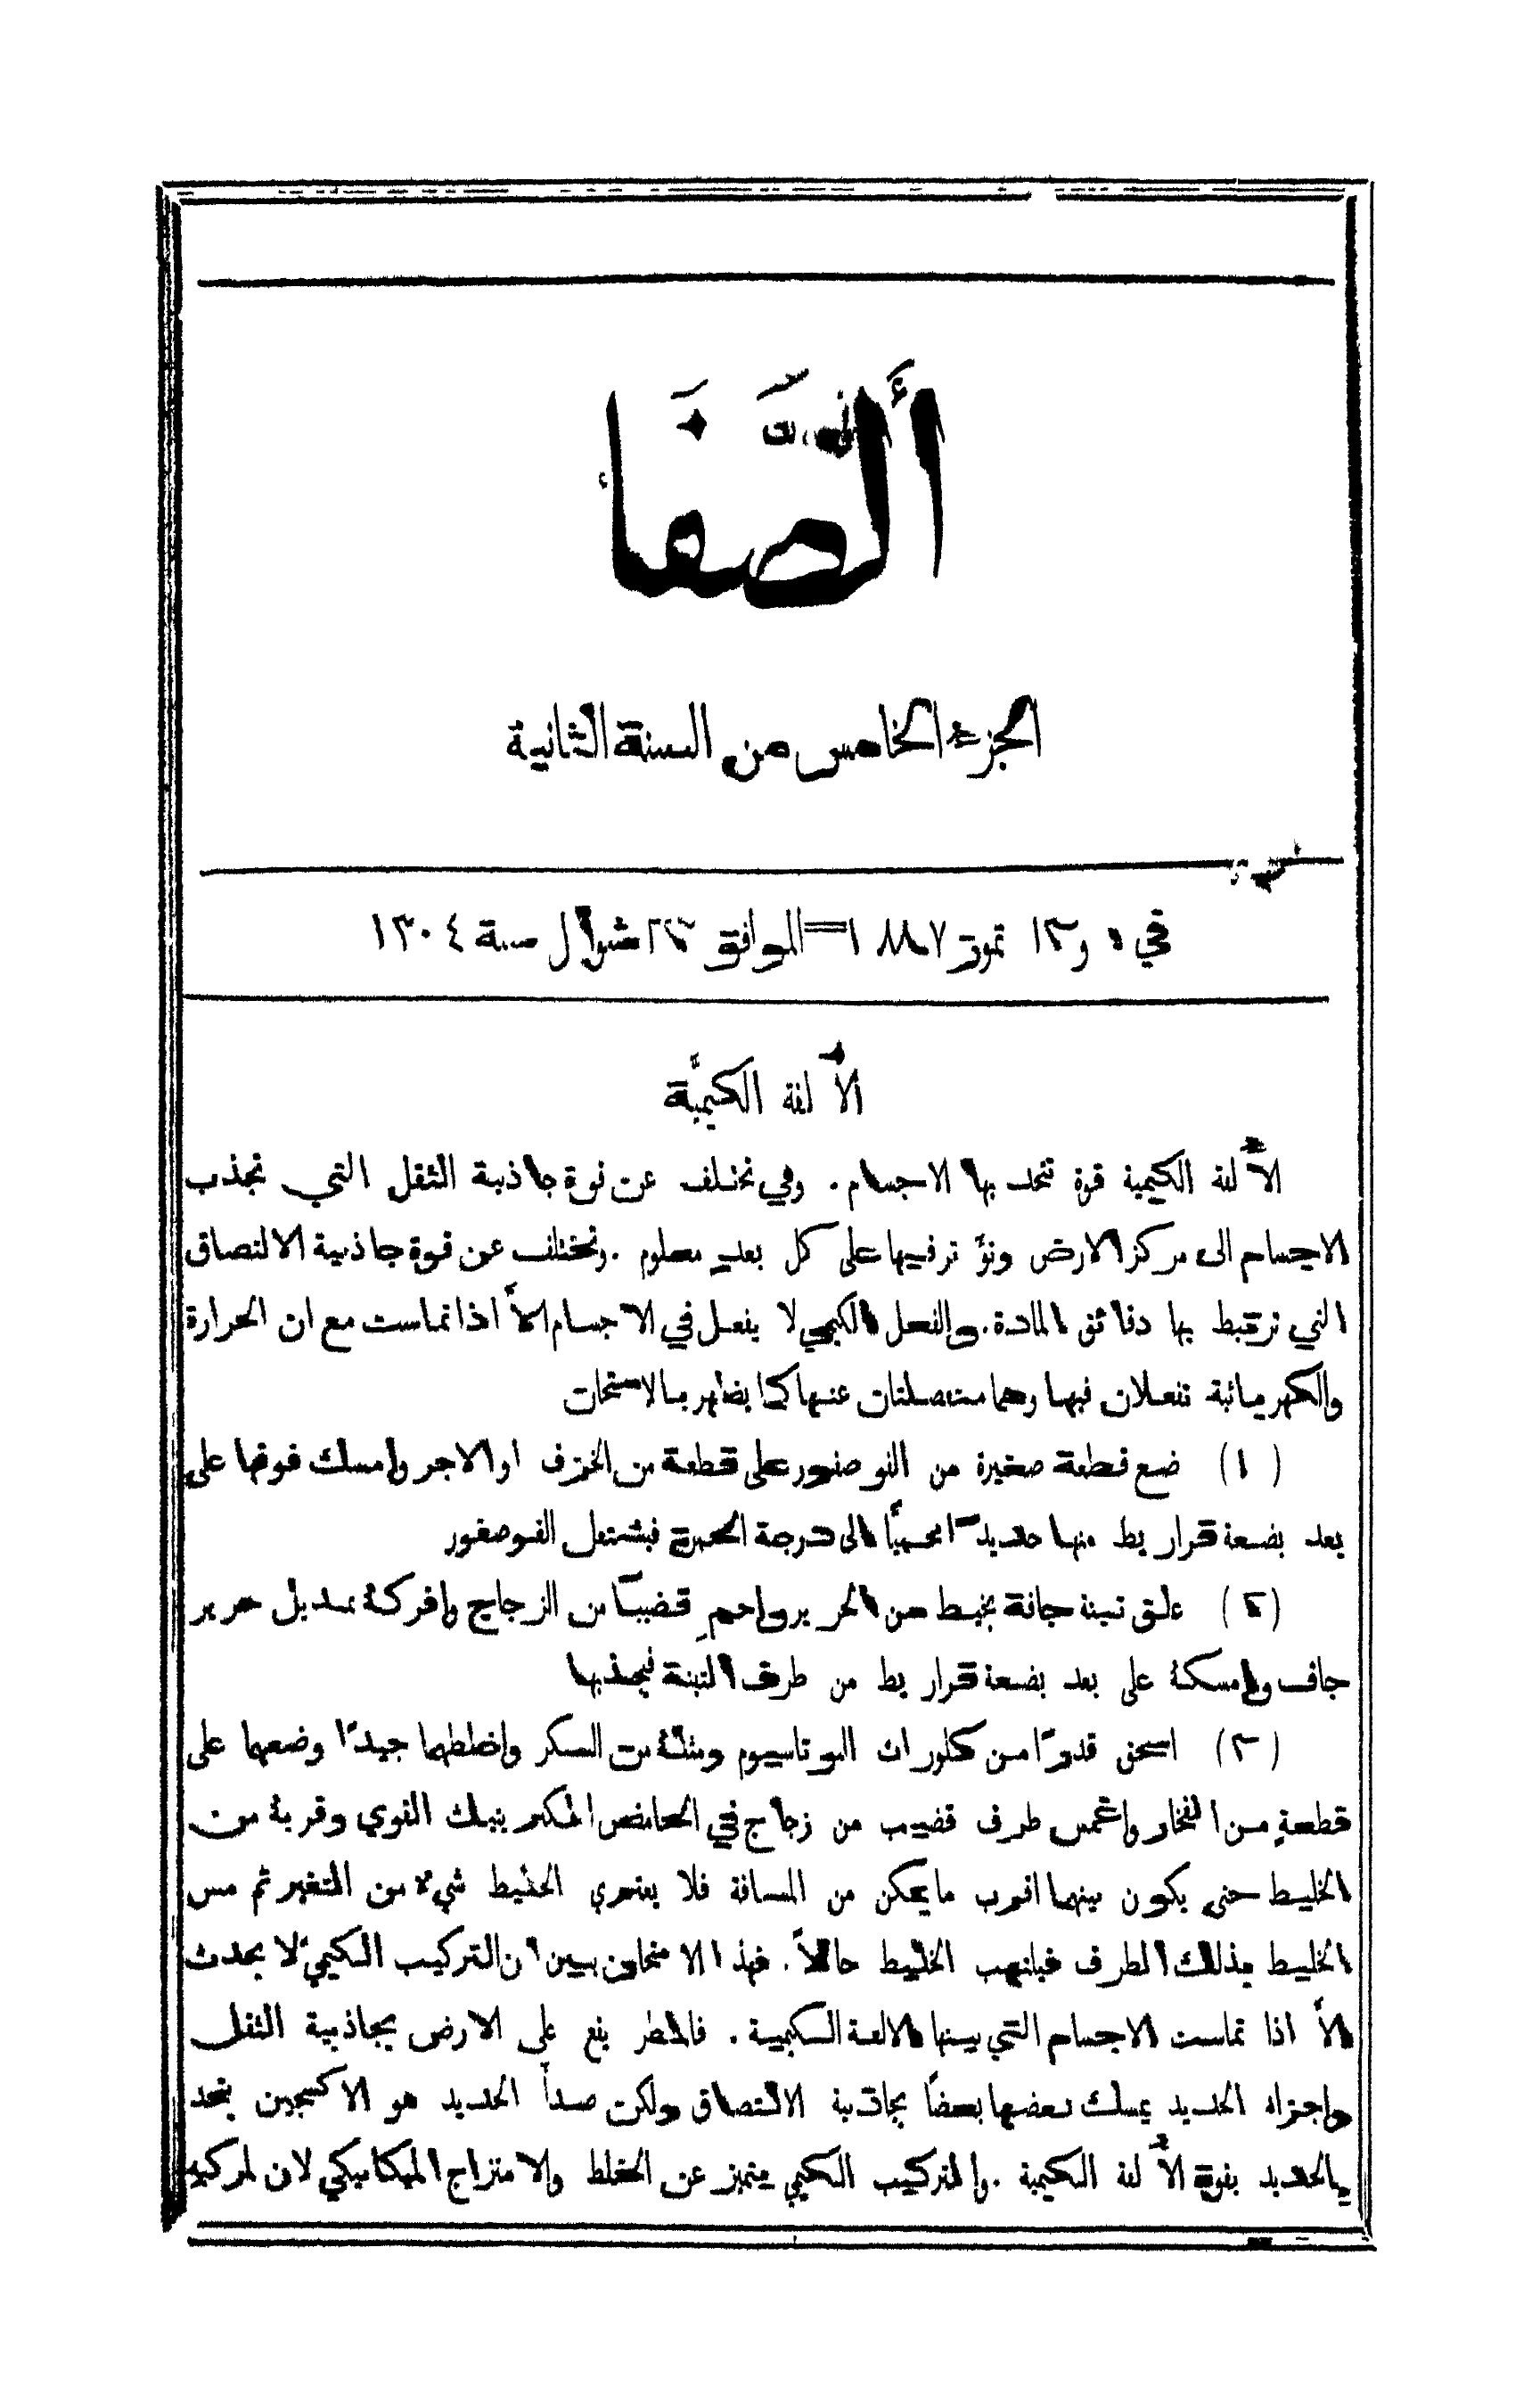 ألصَّفَا
الجزء الخامس من السنة الثانية
في و١٣ تموز ١٨٨٧ = الموافق شوال سنة ١٣٠٤
الأُلفة الكيميَّة
الأُلفة الكيمية قوة تتحد بها الاجسام . وهي تختلف عن قوة جاذبية الثقل التي تجذب
الاجسام الى مركز الارض وتؤثر فيها على كل بعد معلوم . وتختلف عن قوة جاذبية الالتصاق
التي ترتبط بها دقائق المادة . والفعل الكيمي لا يفعل في الاجسام الاَّ اذا تماست مع ان الحرارة
والكهربائية تفعلان فيها وهما منفصلتان عنها كما يظهر بالامتحان
(١) ضع قطعة صغيرة من الفوصفور على قطعة من الخزف او الاجر وامسك فوقها على
بعد بضعة قراريط منها حديدًا محميًّا الى درجة الحمرة فيشتعل الفوصفور
(٢) علق تبنة جافة بخيط من الحرير واحمِ قضيبًا من الزجاج وافركهُ بمنديل حرير
جاف وامسكهُ على بعد بضعة قراريط من طرف التبنة فيجذبها
(٣) اسحق قدرًا من كلورات البوتاسيوم ومثلهُ من السكر واخلطهما جيدًا وضعهما على
قطعةٍ من الفخار واغمس طرف قضيب من زجاج في الحامض الكبريتيك القوي وقربهُ من
الخليط حتى يكون بينهما اقرب ما يمكن من المسافة فلا يعتري الخليط شيءٌ من التغير ثم مس
الخليط بذلك الطرف فيلتهب الخليط حالاً . فهذا الامتحان يبين ان التركيب الكيميَّ لا يحدث
الاَّ اذا تماست الاجسام التي بينها الالفة الكيمية . فالمطر يقع على الارض بجاذبية الثقل
واجزاء الحديد يمسك بعضها بعضًا بجاذبية الالتصاق ولكن صدأ الحديد هو الاكسجين يتحد
بالحديد بقوة الأُلفة الكيمية . والتركيب الكيمي يتميز عن الخلط والامتزاج الميكانيكي لان